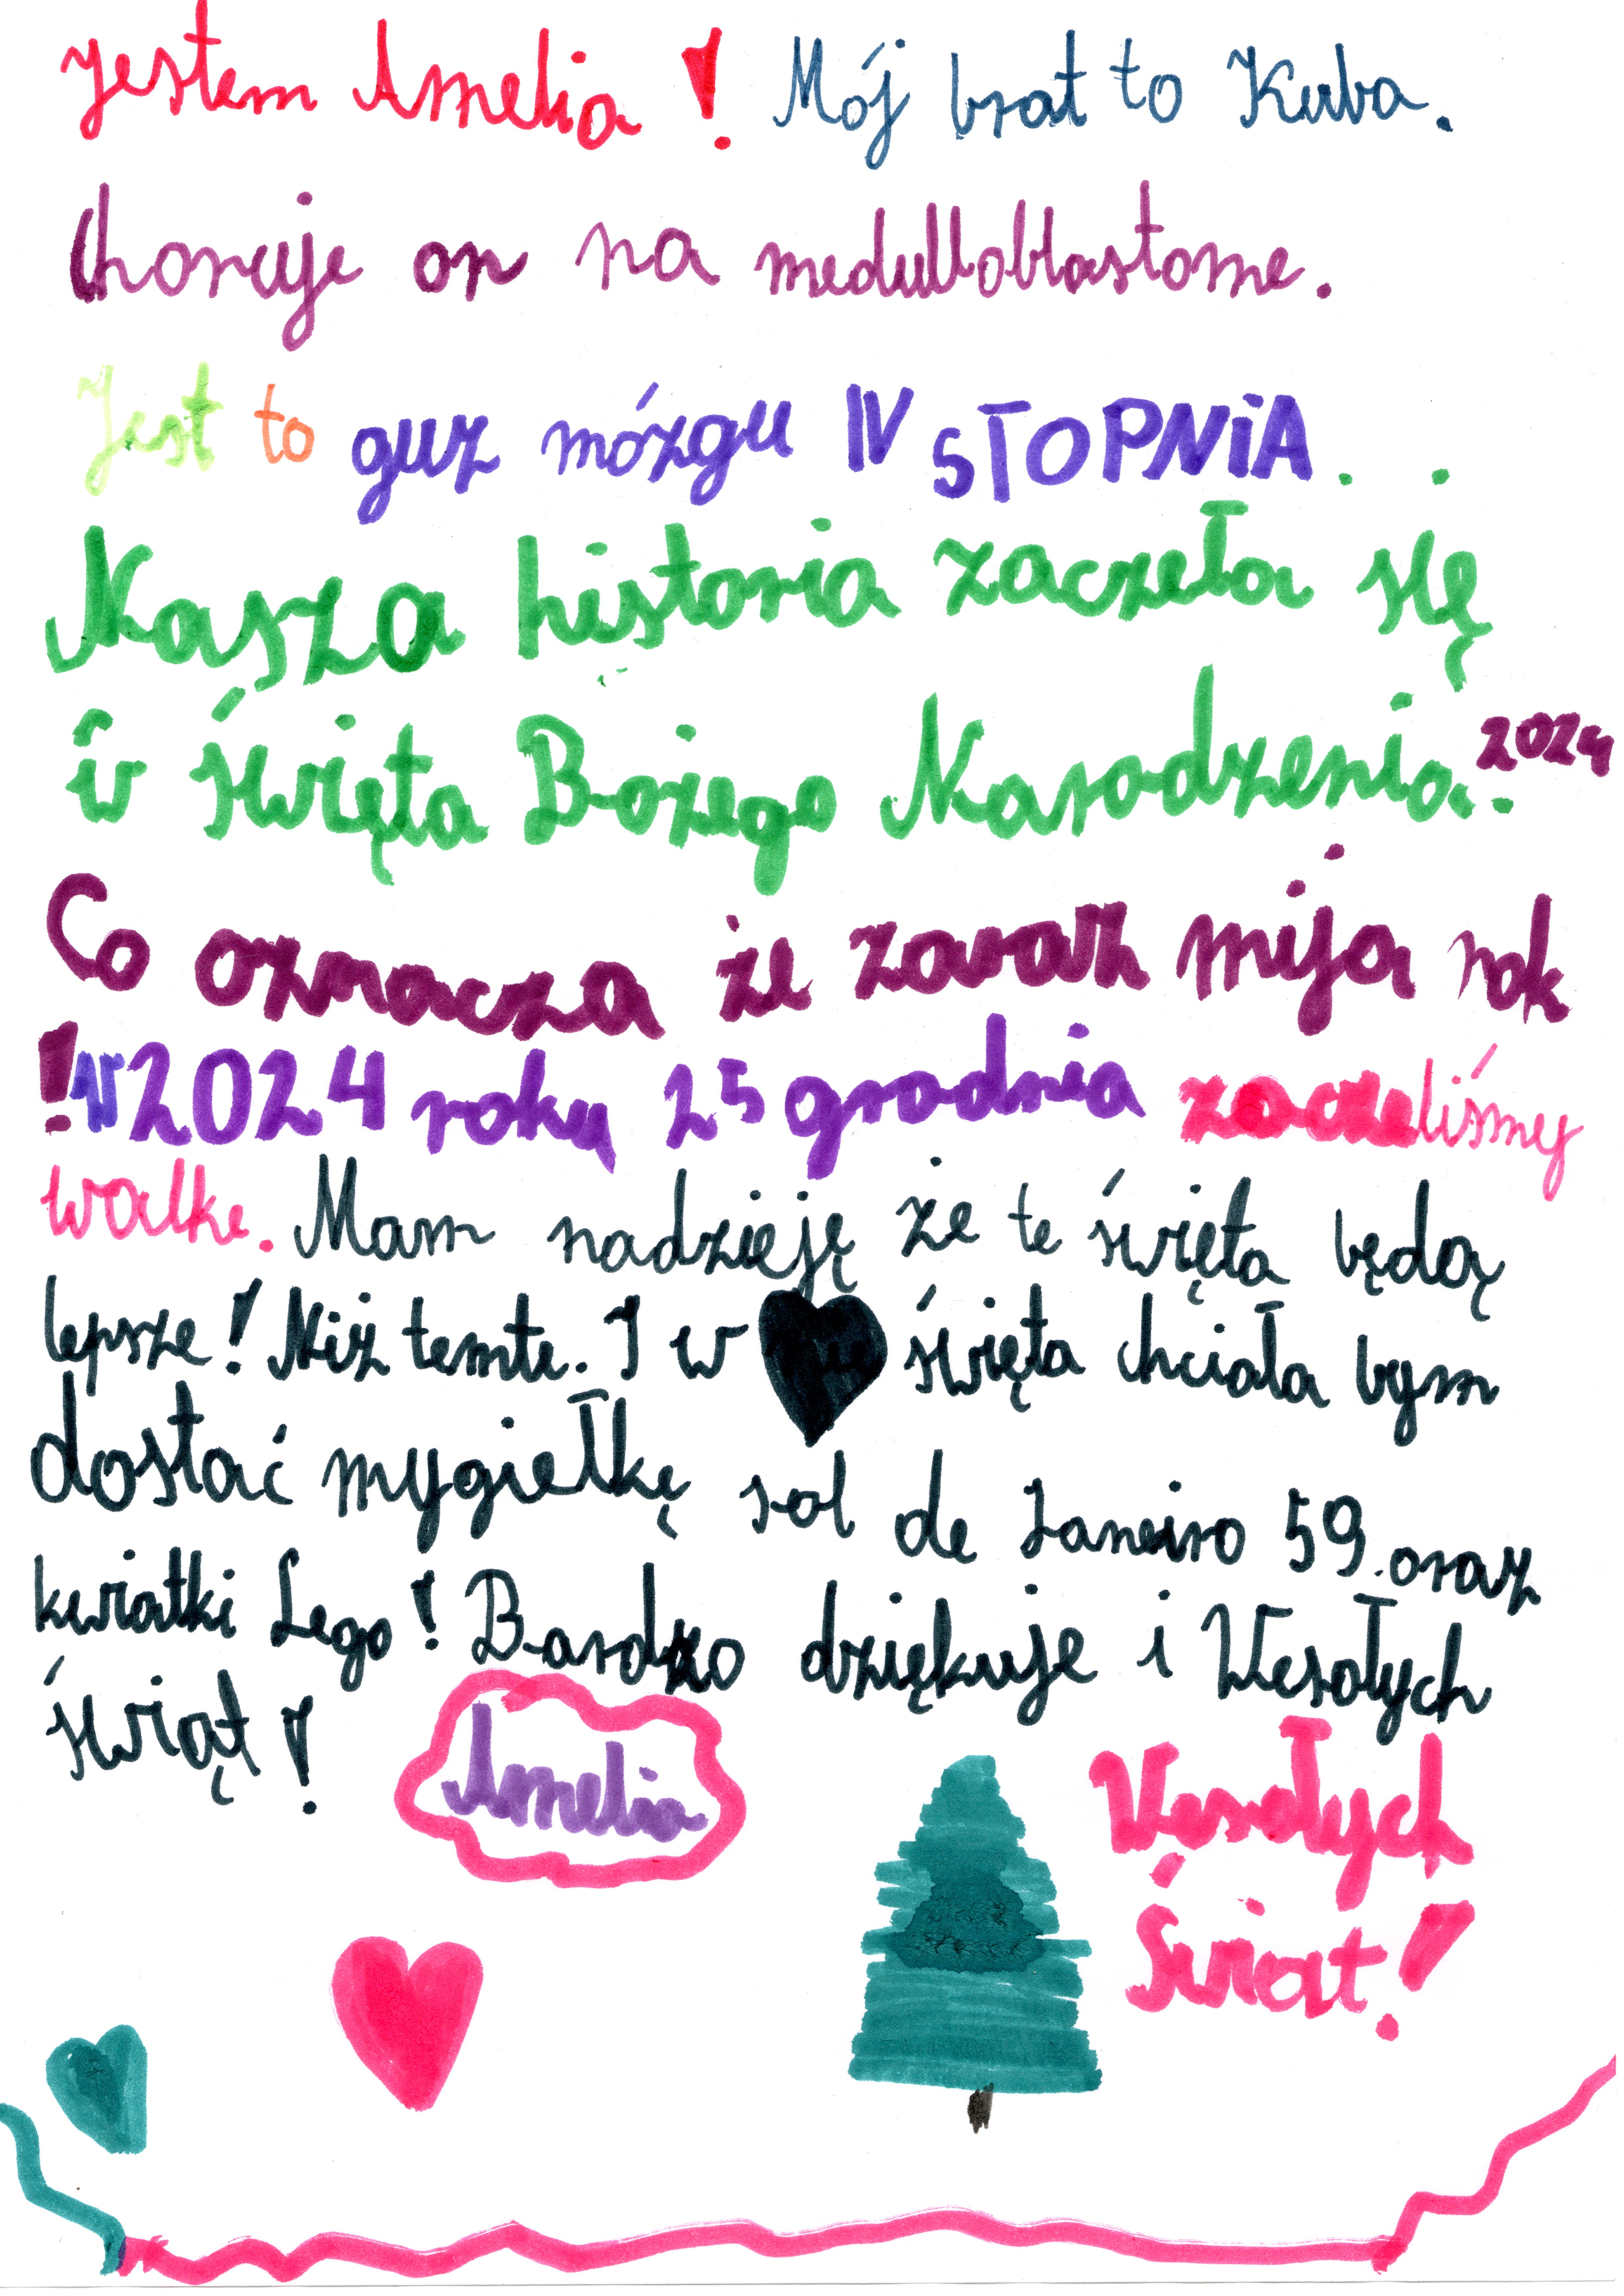 Jestem Amelia! Mój brat to Kuba.
Choruje on na medulloblastome.
Jest to guz mózgu IV STOPNIA.
Nasza historia zaczeła się
w święta Bożego Narodzenia. 2024
Co oznacza że zaraz mija rok
! W 2024 roku 25 grodnia zaczeliśmy
walke. Mam nadzieję że te święta będą
lepsze! Niż temte. I w święta chciała bym
dostać mygiełkę sol de Janeiro 59. oraz
kwiatki Lego! Bardzo dziękuje i Wesołych
świąt!
Amelia
Wesołych
Świat!